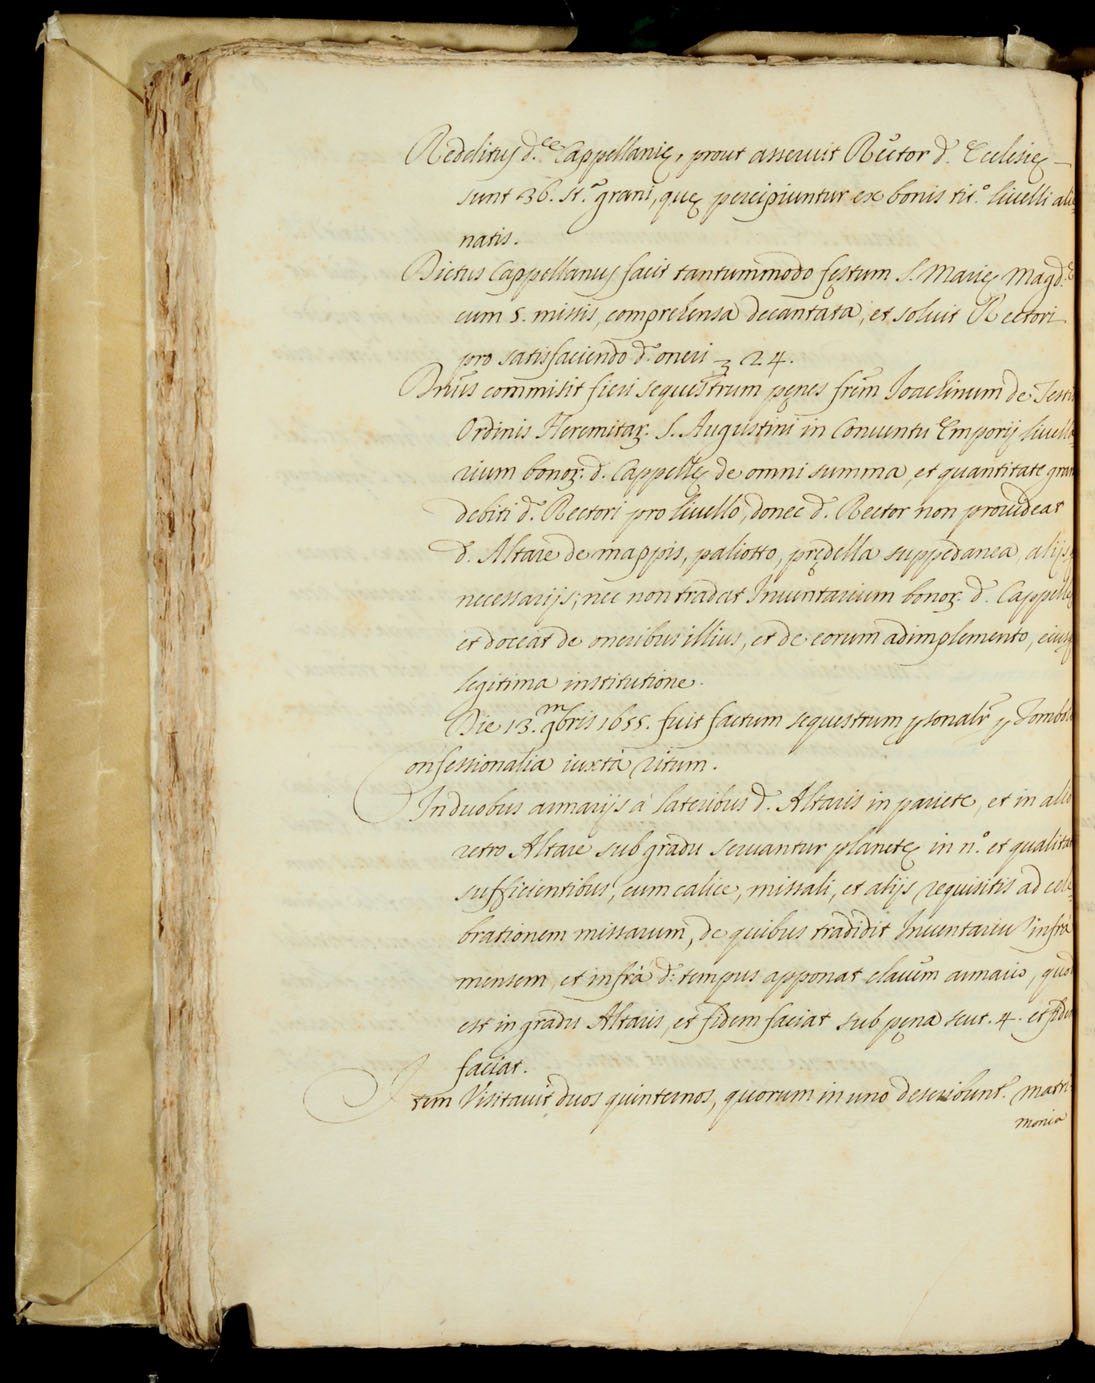 Redditus d.ᶜᵉ Cappellanię, prout asseruit Rector d. Ecclesię
sunt 36. st.ᵃ grani, quę percipiuntur ex bonis tit.º liuelli alie-
natis.
Dictus Cappellanus facit tantummodo festum S. Marię Magd.ᵉ
cum 5. missis, comprehensa decantata, et soluit Rectori
pro satisfaciendo d. oneri 24.
Dnus commisit fieri sequestrum penes frem Joachinum de
Ordinis Heremitar. S. Augustini in Conuentu Emporij liuella-
rium bonor. d. Cappellę de omni summa, et quantitate
debiti d. Rectori pro liuello, donec d. Rector non prouideat
d. Altare de mappis, paliotto, prędella suppedanea, alijs
necessarijs; nec non tradat Inuentarium bonor. d. Cappellę
et doceat de oneribus illius, et de eorum adimplemento,
legitima institutione.
Die 13. 9mbris 1655. fuit factum sequestrum psonalr p
Confessionalia iuxta ritum.
In duobus armarijs à lateribus d. Altaris in pariete, et in alio
retro Altare sub gradu seruantur planetę in n.º et qualitate
sufficientibus, cum calice, missali, et alijs requisitis ad cele-
brationem missarum, de quibus tradidit Inuentariu infrà
mensem, et infrà d. tempus apponat clauem armario, quod
est in gradu Altaris, et fidem faciat sub pęna scut. 4. et fidem
faciat.
Item Visitauit duos quinternos, quorum in uno describunt. matri-
monia